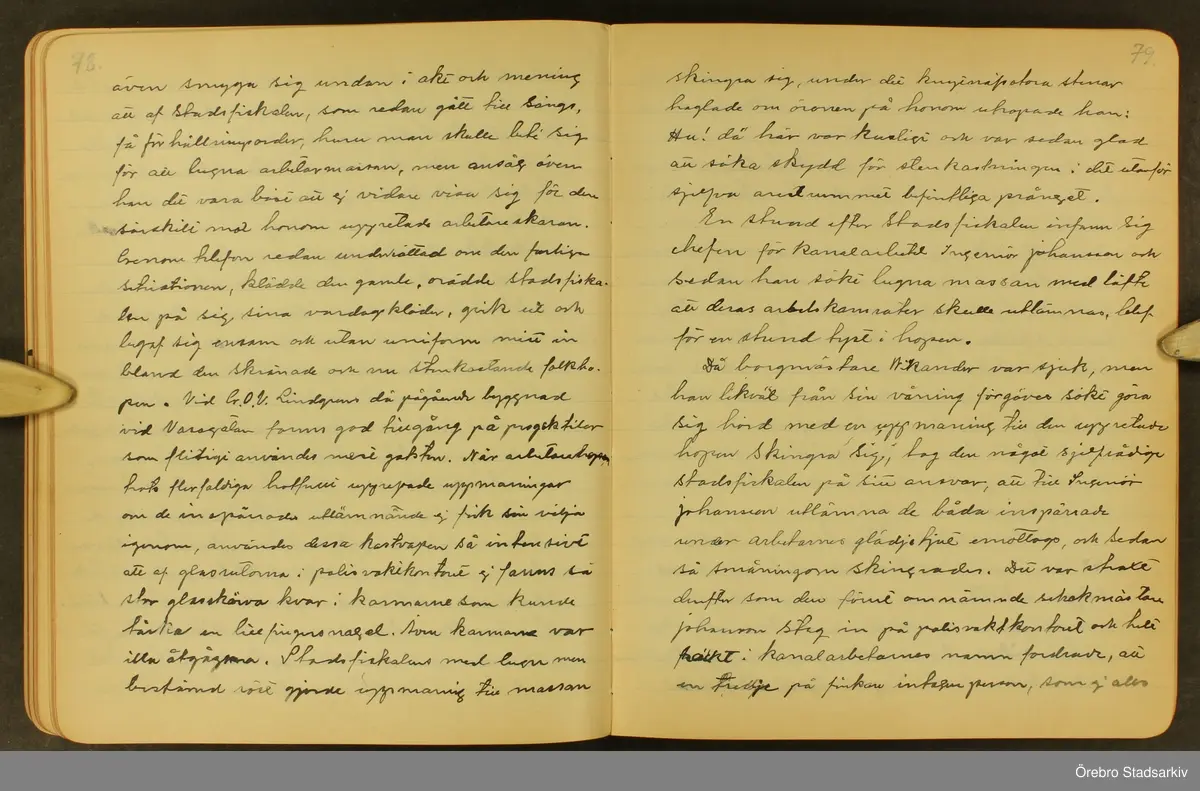 78.
även smyga sig undan i akt och mening
att af Stadsfiskalen, som redan gått till sängs,
få förhållningsorder, huru man skulle bete sig
för att lugna arbetarmassan, men ansåg även
han det vara bäst att ej vidare visa sig för den
särskilt mot honom uppretade arbetareskaran.
Genom telefon redan underrättad om den farliga
situationen, klädde den gamle, orädde stadsfiska-
len på sig sina vardagskläder, gick ut och
begaf sig ensam och utan uniform mitt in
bland den skränade och nu stenkastande folkho-
pen. Vid C.O.V. Lindgrens då pågående byggnad
vid Vasagatan fanns god tillgång på projektiler
som flitigt användes mest gatsten. När arbetarehopen
trots flerfaldiga hotfullt upprepade uppmaningar
om de inspärrades utlämnande ej fick sin vilja
igenom, användes dessa kastvapen så intensivt
att af glasrutorna i polisvaktkontoret ej fanns så
stor glasskärva kvar i karmarne som kunde
täcka en lillfingersnagel. Även karmarne var
illa åtgågna. Stadsfiskalens med lugn men
bestämd röst gjorde uppmaning till massan
79.
skingra sig, under det knytnäfsstora stenar
haglade om öronen på honom utropade han:
Hu! då här var kusligt och var sedan glad
att söka skydd för stenkastningen i det utanför
sjelfva arestrummet befintliga prånget.
En stund efter Stadsfiskalen infann sig
chefen för kanalarbetet Ingeniör Johansson och
sedan han sökt lugna massan med löfte
att deras arbetskamrater skulle utlämnas, blef
för en stund tyst i hopen.
Då borgmästare Wikander var sjuk, men
han likväl från sin våning förgäves sökt göra
sig hörd med en uppmaning till den uppretade
hopen skingra sig, tog den något sjelfrådige
stadsfiskalen på sitt ansvar, att till Ingeniör
Johansson utlämna de båda inspärrade
under arbetarnes glädjetjut emottogs, och sedan
så småningom skingrades. Det var straxt
derefter som den förut omnämnde schaktmästare
Johanson steg in på polisvaktkontoret och helt
fräckt i kanalarbetarnes namn fordrade, att
en tredje på finkan intagen person, som ej alls
Örebro Stadsarkiv